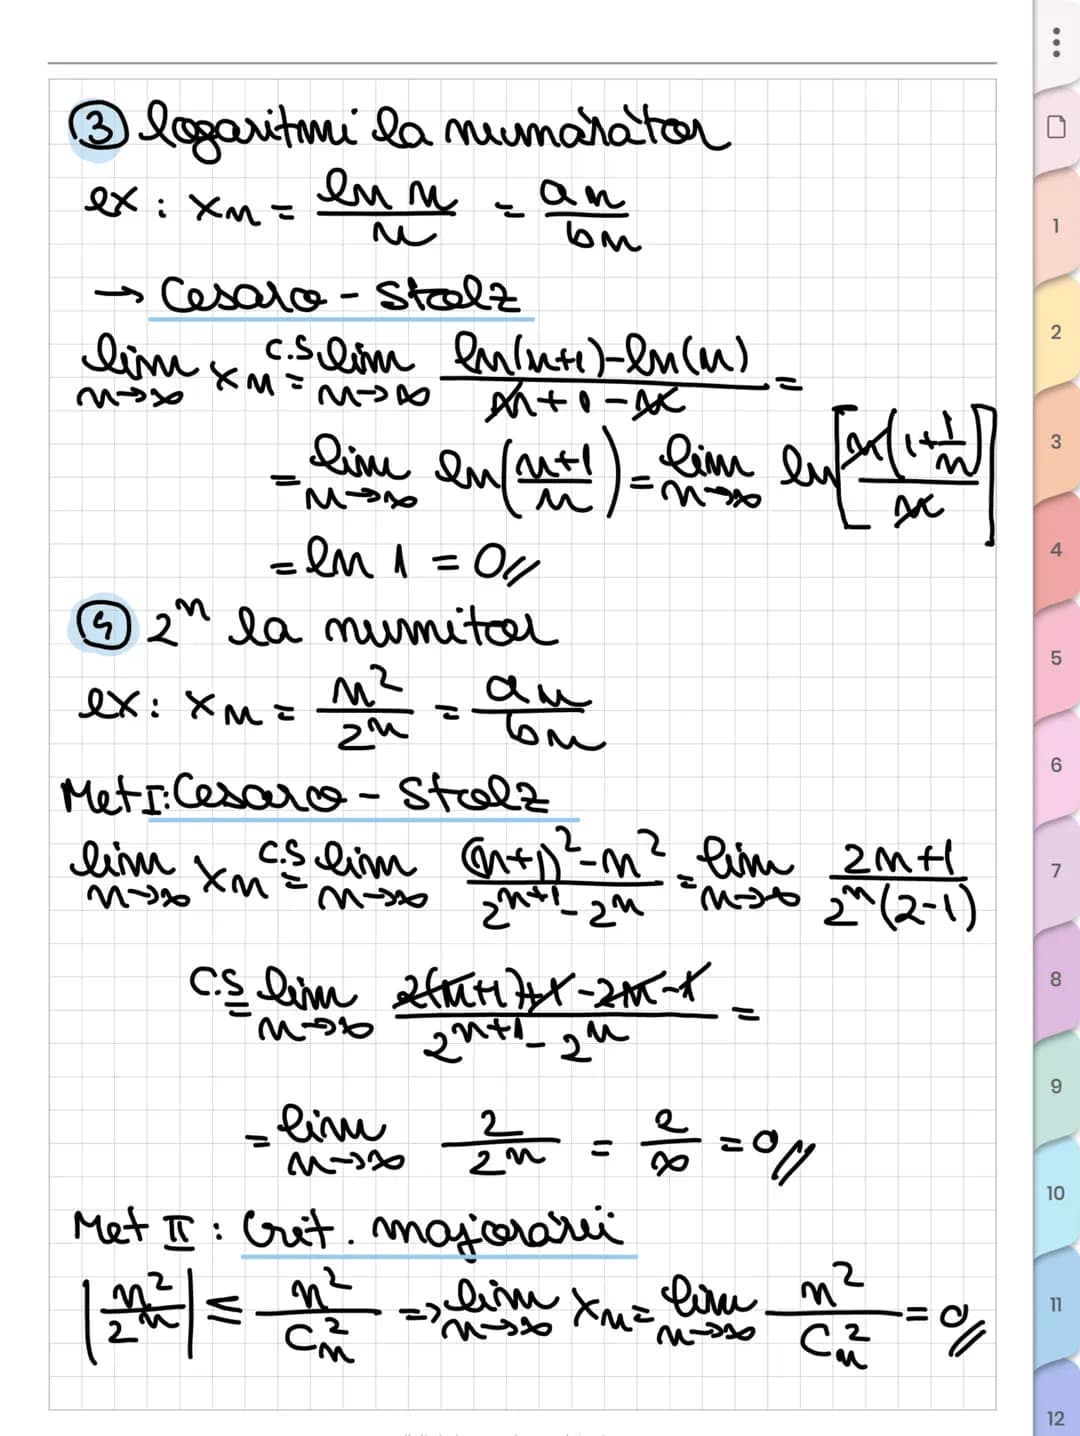 ③ logaritmi la numărător
ex: xn = ln n / n = an / bn
→ Cesaro - Stolz
lim n→∞ xn C.S= lim n→∞ (ln(n+1)-ln(n)) / (n+1-n) =
= lim n→∞ ln((n+1)/n) = lim n→∞ ln[n(1+1/n) / n]
= ln 1 = 0//
④ 2^n la numitor
ex: xn = n^2 / 2^n = an / bn
Met I: Cesaro - Stolz
lim n→∞ xn C.S= lim n→∞ ((n+1)^2-n^2) / (2^(n+1)-2^n) = lim n→∞ (2n+1) / (2^n(2-1))
C.S= lim n→∞ (2(n+1)+1-2n-1) / (2^(n+1)-2^n) =
= lim n→∞ 2 / 2^n = 2 / ∞ = 0//
Met II: Crit. majorării
|n^2 / 2^n| ≤ n^2 / C_n^2 => lim n→∞ xn = lim n→∞ n^2 / C_n^2 = 0//
1
2
3
4
5
6
7
8
9
10
11
12